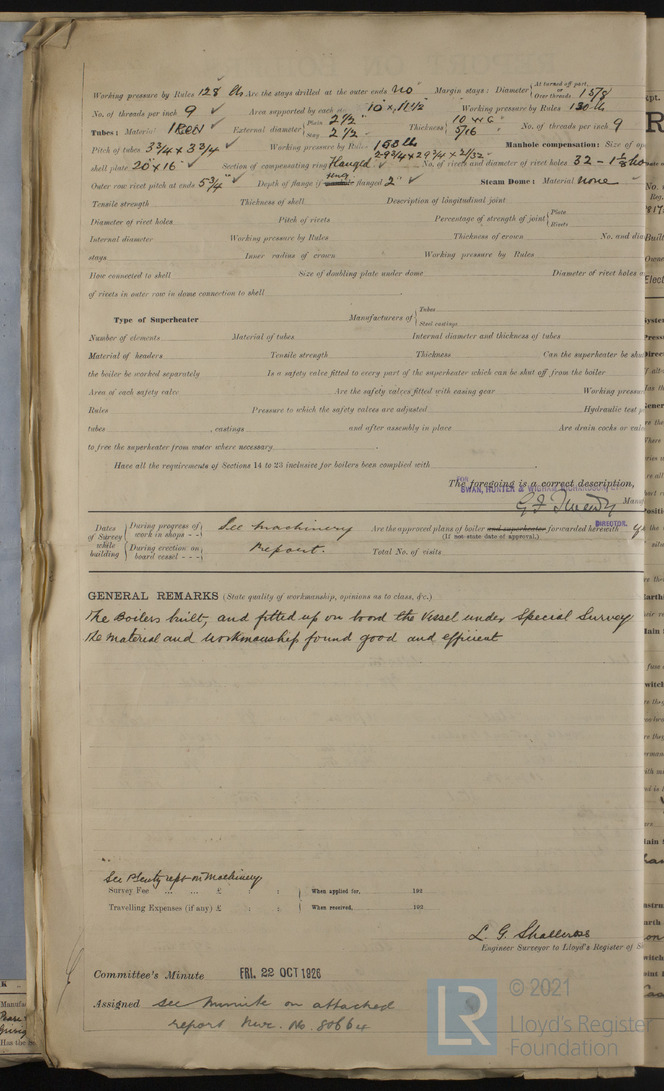 Working pressure by Rules 128 lbs Are the stays drilled at the outer ends No Margin stays: Diameter { At turned off part, or Over threads 1 5/8
No. of threads per inch 9 Area supported by each 10" x 11 1/2 Working pressure by Rules 130 lb
Tubes: Material Iron External diameter { Plain 2 1/2" Stay 2 1/2 Thickness { 10 W G 5/16 No. of threads per inch 9
Pitch of tubes 3 3/4 x 3 3/4 Working pressure by Rules 150 lb Manhole compensation: Size of op
shell plate 20" x 16" Section of compensating ring Flanged 29 3/4 x 29 3/4 x 21/32" No. of rivets and diameter of rivet holes 32 - 1 1/8 ho
Outer row rivet pitch at ends 5 3/4" Depth of flange if ring flanged 2" Steam Dome: Material None
Tensile strength Thickness of shell Description of longitudinal joint
Diameter of rivet holes Pitch of rivets Percentage of strength of joint { Plate Rivets
Internal diameter Working pressure by Rules Thickness of crown No. and dia
stays Inner radius of crown Working pressure by Rules
How connected to shell Size of doubling plate under dome Diameter of rivet holes a
of rivets in outer row in dome connection to shell
Type of Superheater Manufacturers of { Tubes Steel castings
Number of elements Material of tubes Internal diameter and thickness of tubes
Material of headers Tensile strength Thickness Can the superheater be shu
the boiler be worked separately Is a safety valve fitted to every part of the superheater which can be shut off from the boiler
Area of each safety valve Are the safety valves fitted with easing gear Working pressu
Rules Pressure to which the safety valves are adjusted Hydraulic test p
tubes , castings and after assembly in place Are drain cocks or valv
to free the superheater from water where necessary
Have all the requirements of Sections 14 to 23 inclusive for boilers been complied with
The foregoing is a correct description,
FOR SWAN, HUNTER & WIGHAM RICHARDSON
Manuf
DIRECTOR.
Dates of Survey while building { During progress of work in shops - - During erection on board vessel - - - See Machinery Report. Are the approved plans of boiler and superheater forwarded herewith
(If not state date of approval.)
Total No. of visits
GENERAL REMARKS (State quality of workmanship, opinions as to class, &c.)
The Boilers built, and fitted up on board the Vessel under Special Survey
the material and workmanship found good and efficient
See Plenty rept on Machinery
Survey Fee ... ... £ : : When applied for, 192
Travelling Expenses (if any) £ : : When received, 192
L. G. Shallcross
Engineer Surveyor to Lloyd's Register of S
Committee's Minute FRI. 22 OCT 1926
Assigned See Minute on attached
report Nwc. No. 80664
© 2021
Lloyd's Register
Foundation